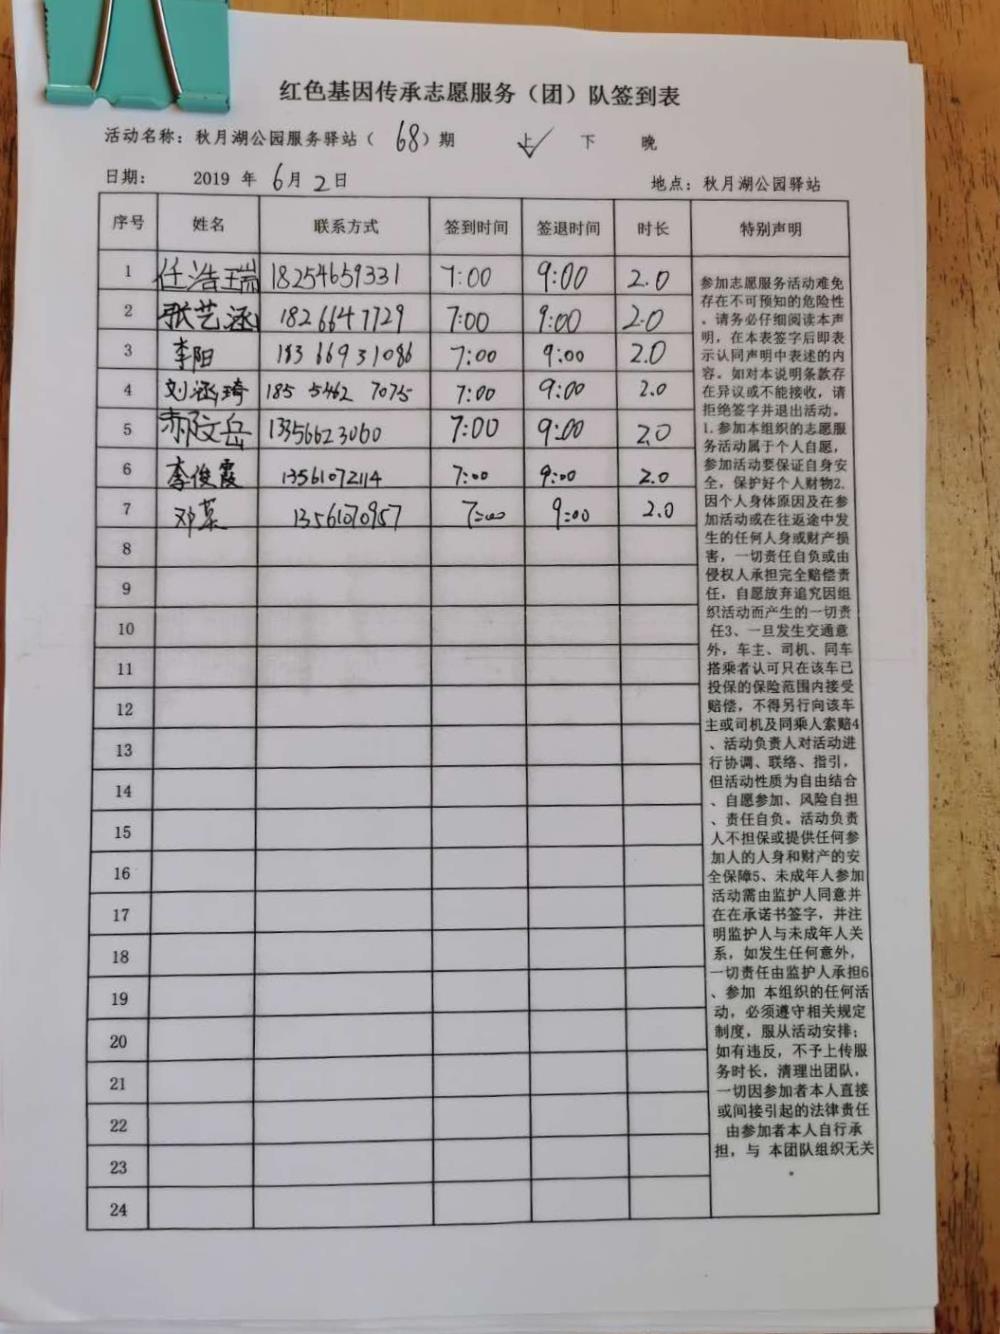 红色基因传承志愿服务（团）队签到表
活动名称：秋月湖公园服务驿站（ 68 ）期 上✓ 下 晚
日期： 2019 年 6 月 2 日 地点：秋月湖公园驿站
序号 姓名 联系方式 签到时间 签退时间 时长 特别声明
1 任浩瑞 18254659331 7:00 9:00 2.0
2 张艺涵 1826647729 7:00 9:00 2.0
3 李阳 18366931086 7:00 9:00 2.0
4 刘涵琦 185 5462 7075 7:00 9:00 2.0
5 郝文岳 13356623060 7:00 9:00 2.0
6 李俊霞 13561072114 7:00 9:00 2.0
7 邓 13561070957 7:00 9:00 2.0
8
9
10
11
12
13
14
15
16
17
18
19
20
21
22
23
24
参加志愿服务活动难免
存在不可预知的危险性
。请务必仔细阅读本声
明，在本表签字后即表
示认同声明中表述的内
容。如对本说明条款存
在异议或不能接收，请
拒绝签字并退出活动。
1.参加本组织的志愿服
务活动属于个人自愿，
参加活动要保证自身安
全，保护好个人财物2.
因个人身体原因及在参
加活动或在往返途中发
生的任何人身或财产损
害，一切责任自负或由
侵权人承担完全赔偿责
任，自愿放弃追究因组
织活动而产生的一切责
任3、一旦发生交通意
外，车主、司机、同车
搭乘者认可只在该车已
投保的保险范围内接受
赔偿，不得另行向该车
主或司机及同乘人索赔4
、活动负责人对活动进
行协调、联络、指引，
但活动性质为自由结合
、自愿参加、风险自担
、责任自负。活动负责
人不担保或提供任何参
加人的人身和财产的安
全保障5、未成年人参加
活动需由监护人同意并
在在承诺书签字，并注
明监护人与未成年人关
系，如发生任何意外，
一切责任由监护人承担6
、参加 本组织的任何活
动，必须遵守相关规定
制度，服从活动安排；
如有违反，不予上传服
务时长，清理出团队，
一切因参加者本人直接
或间接引起的法律责任
由参加者本人自行承
担，与 本团队组织无关
。